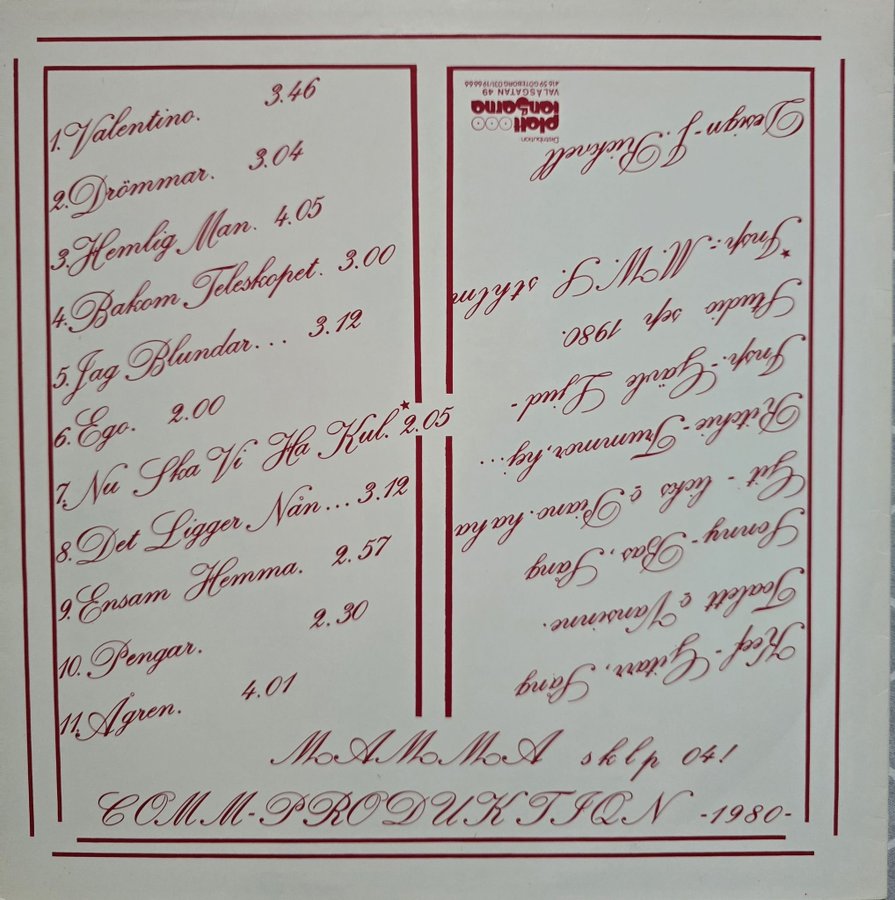 1. Valentino. 3.46
2. Drömmar. 3.04
3. Hemlig Man. 4.05
4. Bakom Teleskopet. 3.00
5. Jag Blundar... 3.12
6. Ego. 2.00
7. Nu Ska Vi Ha Kul.* 2.05
8. Det Ligger Nån... 3.12
9. Ensam Hemma. 2.57
10. Pengar. 2.30
11. Ågren. 4.01
Keef - Gitarr, Sång
Toalett & Vansinne.
Sonny - Bas, Sång
Git - licks & Piano. ha ha
Ritchie - Trummor, hej...
Insp.- Gävle Ljud -
Studio sep 1980.
* Insp.- M.W.S. sthlm
Design - J. Ricknell
Distribution
platt
langarna
VALÅSGATAN 49
416 59 GÖTEBORG 031/19 66 66
MAMMA sklp 04!
COMM-PRODUKTION -1980-